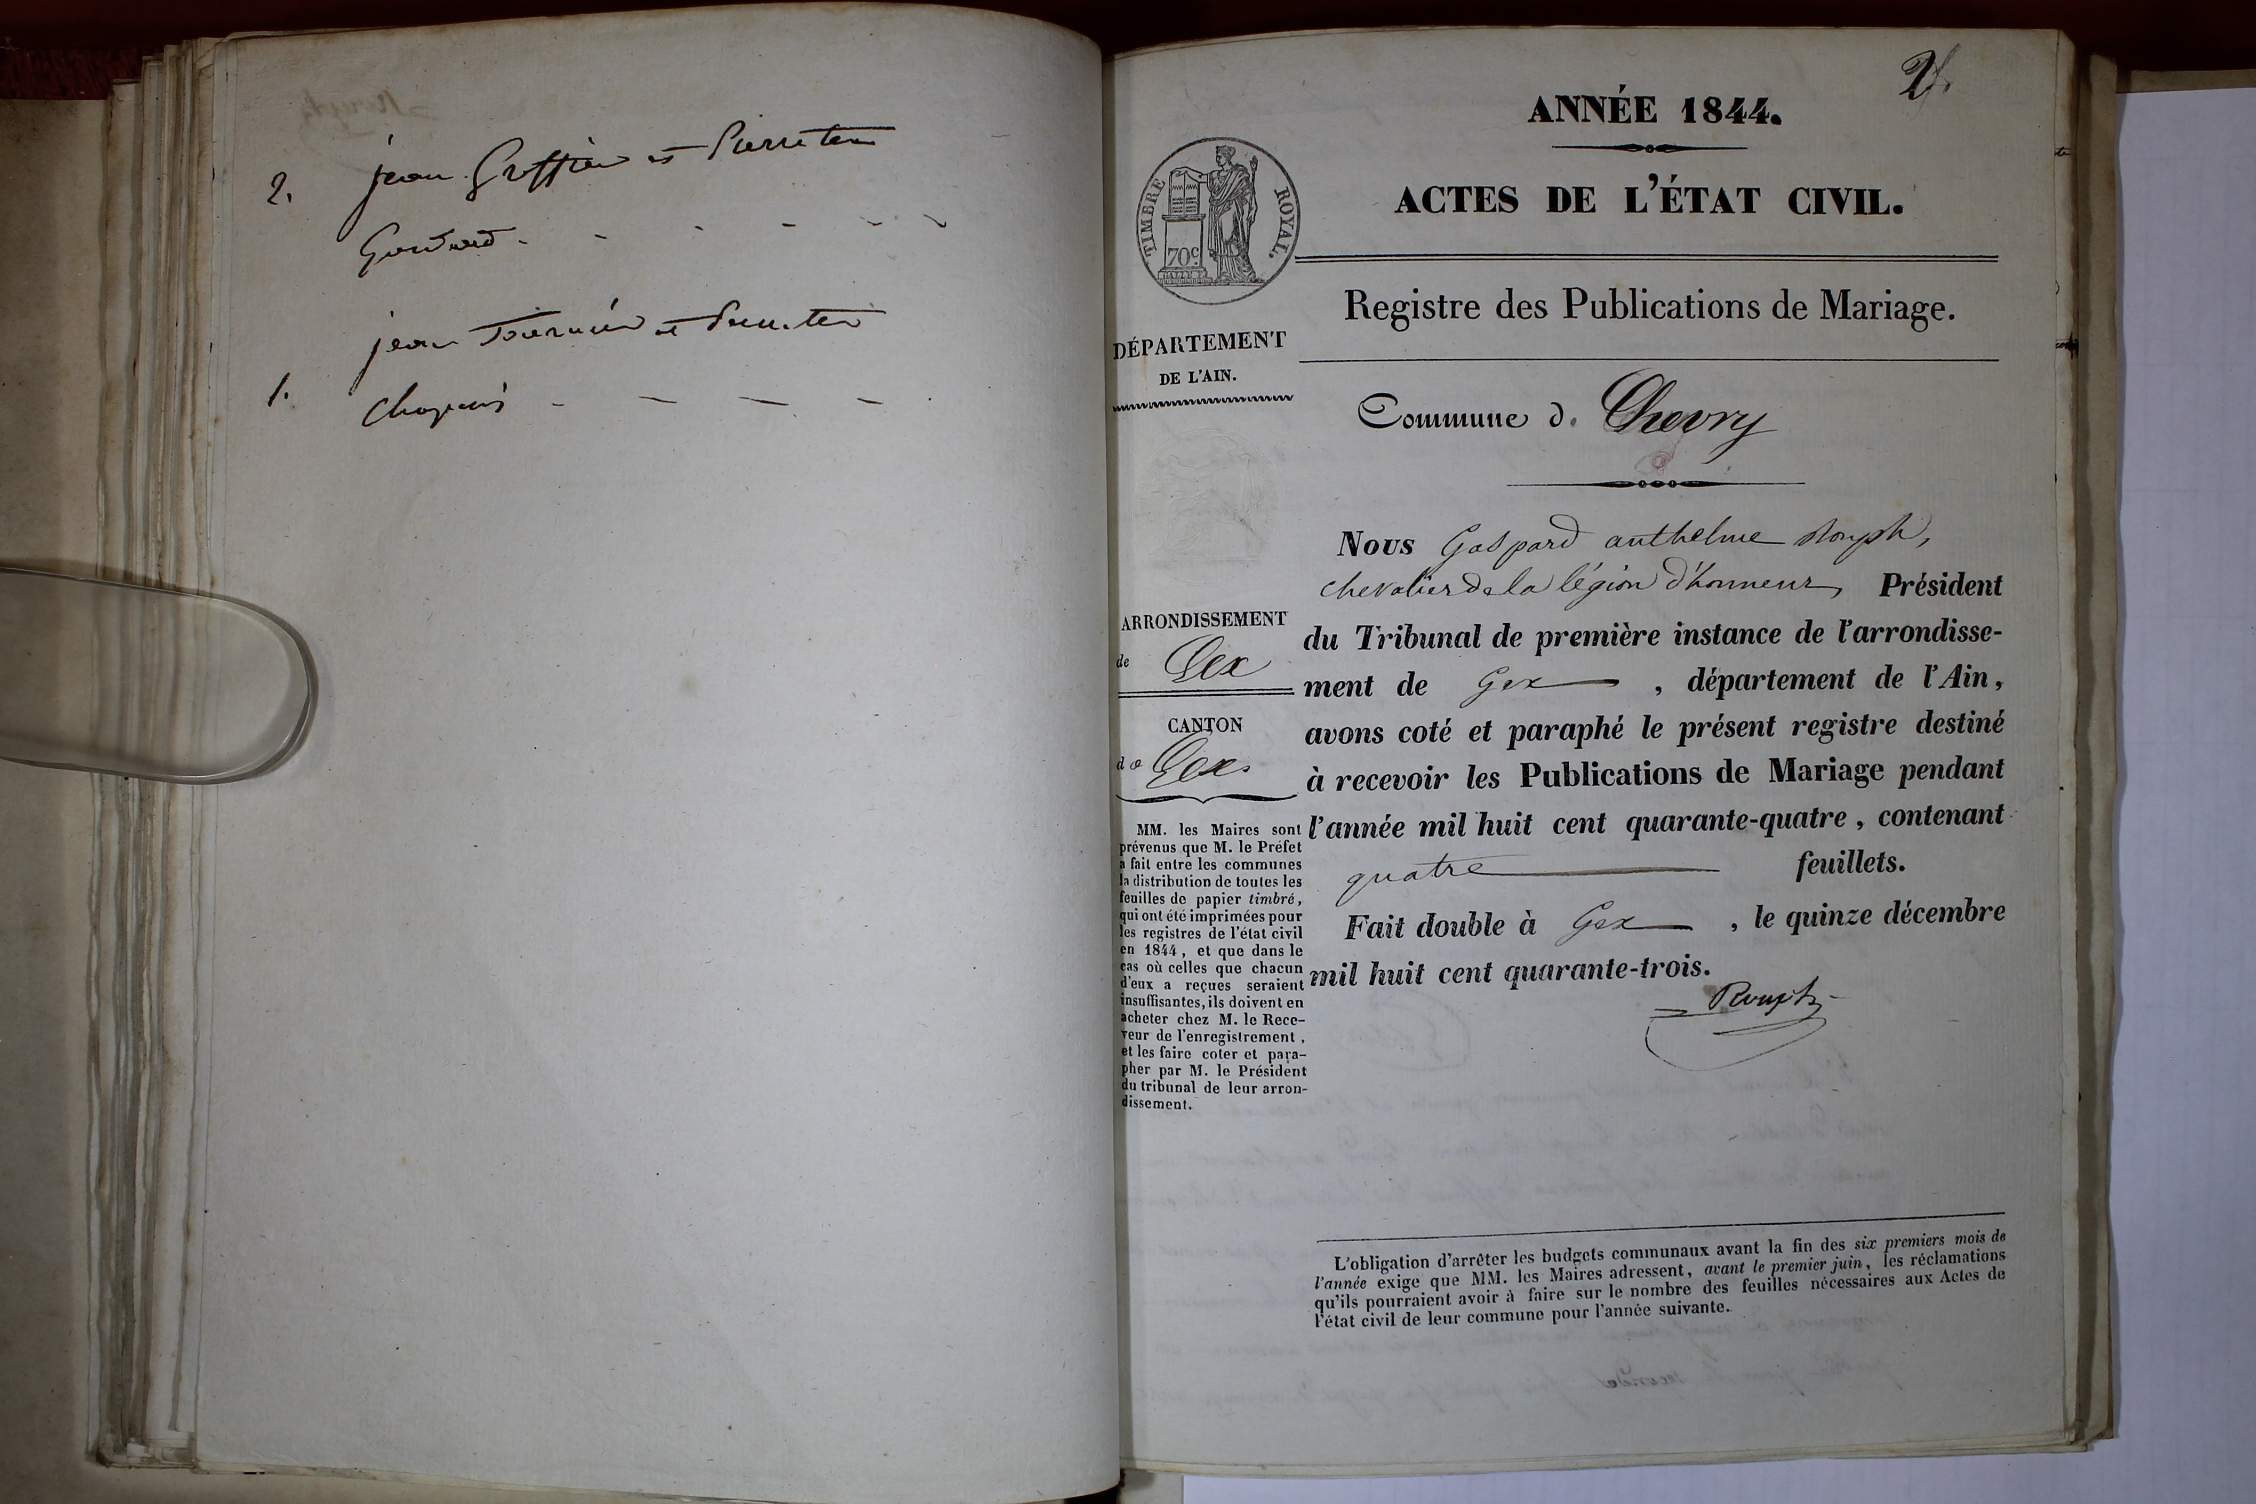 2. jean Groffier et Pierrette
Goudard - - - - - -
jean Tournier et Pernette
1. Chapuis - - - -
ANNÉE 1844.
ACTES DE L'ÉTAT CIVIL.
TIMBRE ROYAL.
70c
Registre des Publications de Mariage.
DÉPARTEMENT
DE L'AIN.
Commune d. Chevry
ARRONDISSEMENT
de Gex
CANTON
de Gex
MM. les Maires sont
prévenus que M. le Préfet
a fait entre les communes
la distribution de toutes les
feuilles de papier timbré,
qui ont été imprimées pour
les registres de l'état civil
en 1844, et que dans le
cas où celles que chacun
d'eux a reçues seraient
insuffisantes, ils doivent en
acheter chez M. le Rece-
veur de l'enregistrement,
et les faire coter et para-
pher par M. le Président
du tribunal de leur arron-
dissement.
Nous Gaspard anthelme Rouph,
chevalier de la légion d'honneur, Président
du Tribunal de première instance de l'arrondisse-
ment de Gex, département de l'Ain,
avons coté et paraphé le présent registre destiné
à recevoir les Publications de Mariage pendant
l'année mil huit cent quarante-quatre, contenant
quatre feuillets.
Fait double à Gex, le quinze décembre
mil huit cent quarante-trois.
L'obligation d'arrêter les budgets communaux avant la fin des six premiers mois de
l'année exige que MM. les Maires adressent, avant le premier juin, les réclamations
qu'ils pourraient avoir à faire sur le nombre des feuilles nécessaires aux Actes de
l'état civil de leur commune pour l'année suivante.